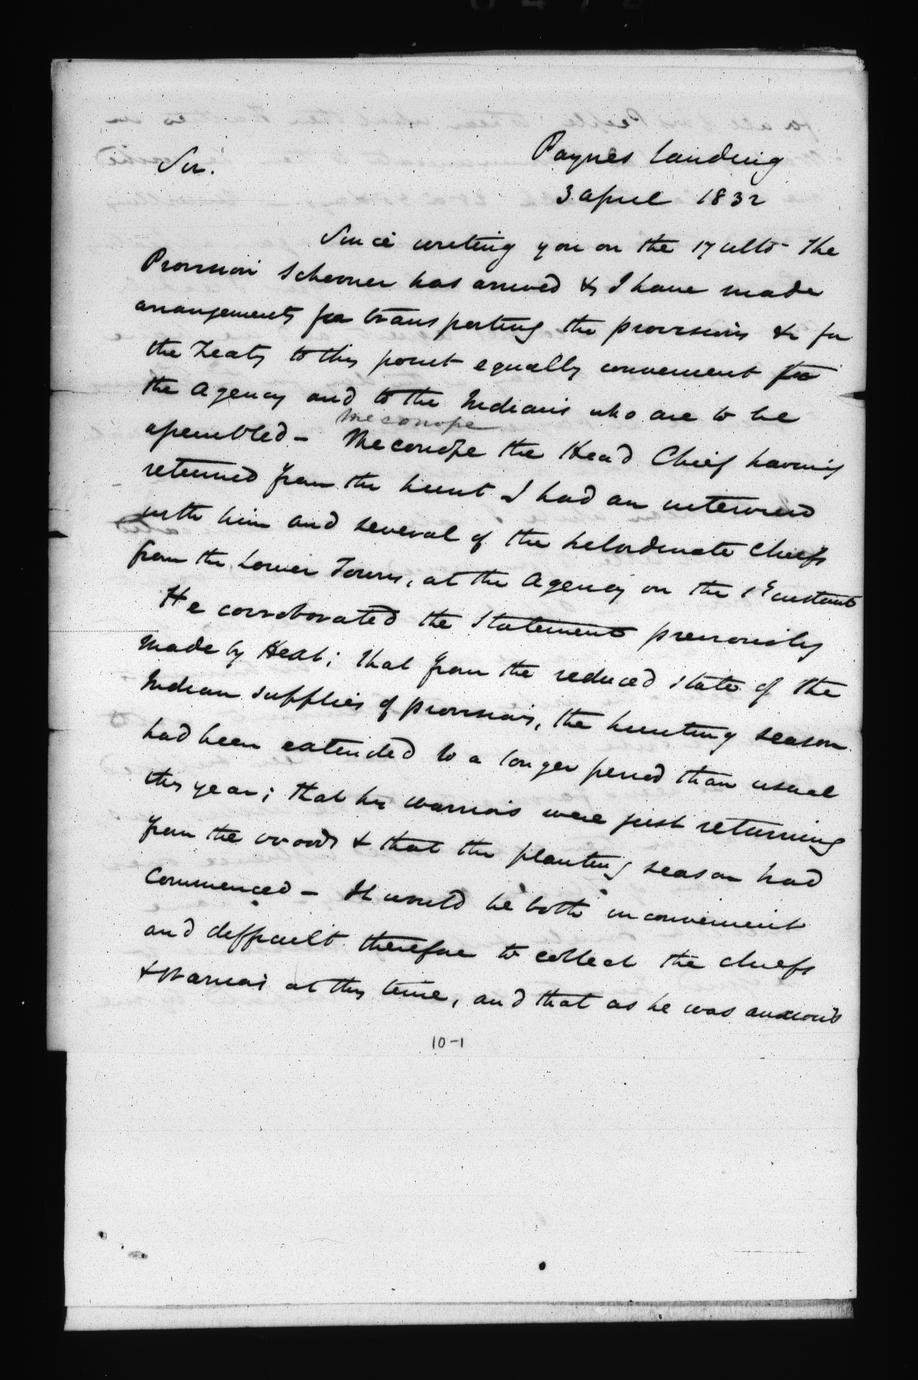 Paynes Landing
Sir.
3 april 1832
Since writing you on the 17 ulto - The
Provision Schooner has arrived & I have made
arrangements for transporting the provisions &c for
the Treaty to this point equally convenient for
the Agency and to the Indians who are to be
Meconope
assembled - Meconope the Head Chief having
returned from the hunt I had an interview
with him and several of the subordinate chiefs
from the Lower Towns, at the Agency on the 1st instant
He corroborated the statement previously
made by Heat; that from the reduced state of the
Indian supplies of provisions, the hunting season
had been extended to a longer period than usual
this year; that his warriors were just returning
from the woods & that the planting season had
commenced - It would be both inconvenient
and difficult therefore to collect the chiefs
& Warriors at this time, and that as he was anxious
10-1